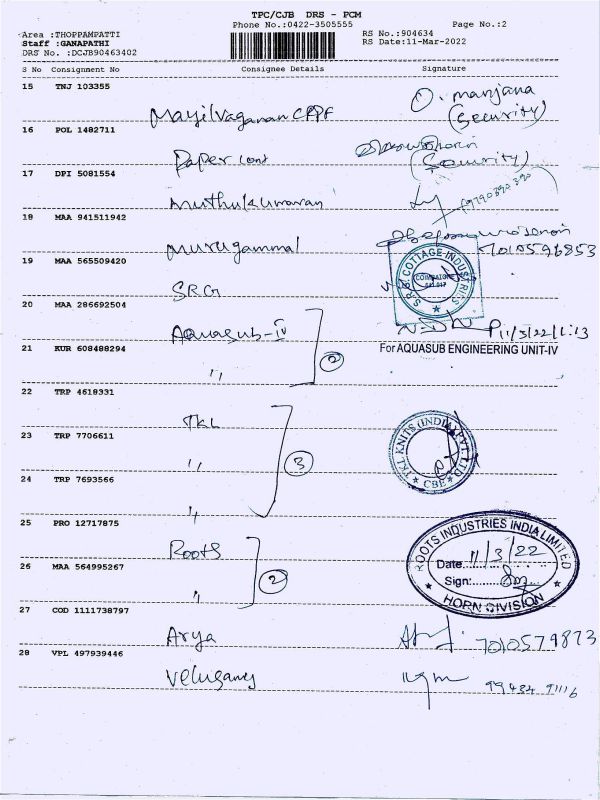 TPC/CJB DRS - PCM
Phone No.:0422-3505555
Page No.:2
Area :THOPPAMPATTI
RS No.:904634
Staff :GANAPATHI
RS Date:11-Mar-2022
DRS No. :DCJB90463402
S No Consignment No Consignee Details Signature
15 TNJ 103355
Mayilvaganan CRPF O. manjana
(Security)
16 POL 1482711
Paper cont
(Security)
17 DPI 5081554
Muthukumaran
18 MAA 941511942
Murugammal
7010596853
19 MAA 565509420
SRG
S.R.G. COTTAGE INDUSTRIES
COIMBATORE
641 017
20 MAA 286692504
Aquasub-IV
11/3/22
21 KUR 608488294
For AQUASUB ENGINEERING UNIT-IV
,, 2
22 TRP 4618331
TKL
23 TRP 7706611
,, 3
TKL KNITS (INDIA) PVT. LTD
CBE
24 TRP 7693566
,,
25 PRO 12717875
Roots
ROOTS INDUSTRIES INDIA LIMITED
Date 11/3/22
26 MAA 564995267
,, 2
Sign:
HORN DIVISION
27 COD 1111738797
Arya 7010579873
28 VPL 497939446
Velusamy 99434 91116